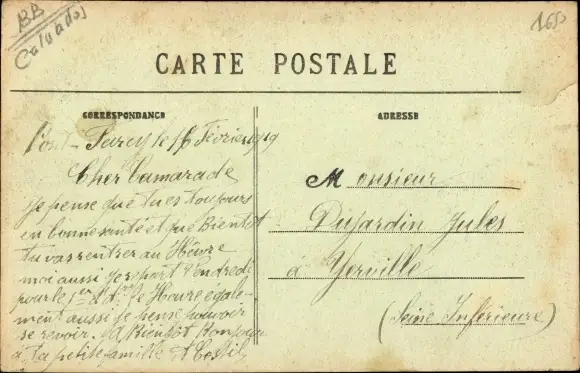 BB
Calvados
1650
CARTE POSTALE
CORRESPONDANCE
ADRESSE
Pont-Farcy le 16 Février 1919
Cher Camarade
je pense que tu es toujours
en bonne santé et que Bientot
tu vas rentrer au Hâvre
moi aussi je repart Vendredi
pour le 1er le Havre égale-
ment aussi je pense pouvoir
se revoir. A Bientôt Bonjour
à ta petite famille
Monsieur
Dujardin Jules
à Yerville
(Seine Inférieure)